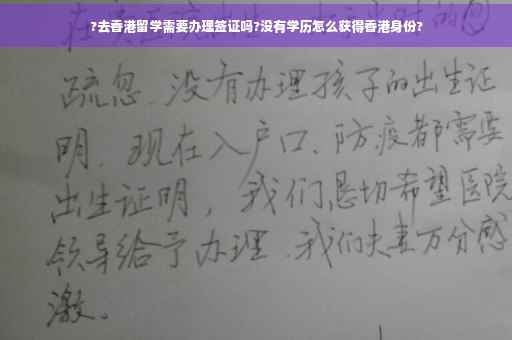 ?去香港留学需要办理签证吗?没有学历怎么获得香港身份?
疏忽、没有办理孩子的出生证
明、现在入户口、防疫都需要
出生证明，我们恳切希望医院
领导给予办理、我们夫妻万分感
激。